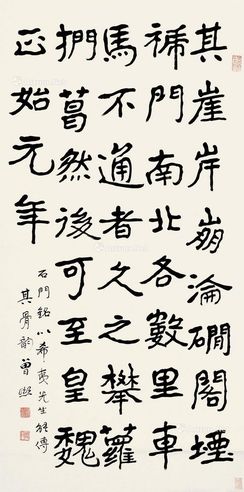 其崖岸崩淪磵閣堙
褫門南北各數里車
馬不通者久之攀蘿
捫葛然後可至皇魏
正始元年
石門銘以希夷先生能傳
其骨韻曾熙